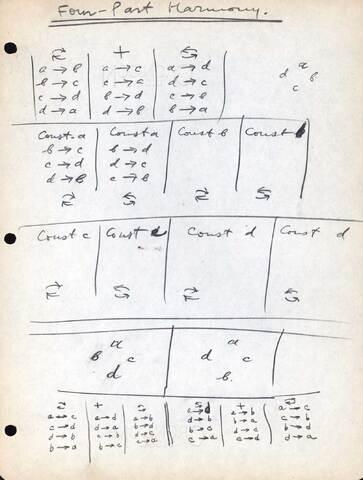 Four-Part Harmony.
⇄ + ⇆
a → b a → c a → d
b → c c → a d → c
c → d b → d c → b
d → a d → b b → a
a
d b
c
Const. a Const a Const b Const b
b → c b → d
c → d d → c
d → b c → b
⇄ ⇆ ⇄ ⇆
Const c Const c Const d Const d
⇄ ⇆ ⇄ ⇆
a a
b c d c
d b.
⇄ + ⇆ ⇆ + ⇄
a → c a → d a → b a → d a → b a → c
c → d d → a b → d d → b b → a c → b
d → b c → b d → c b → c d → c b → d
b → a b → c c → a c → a c → d d → a